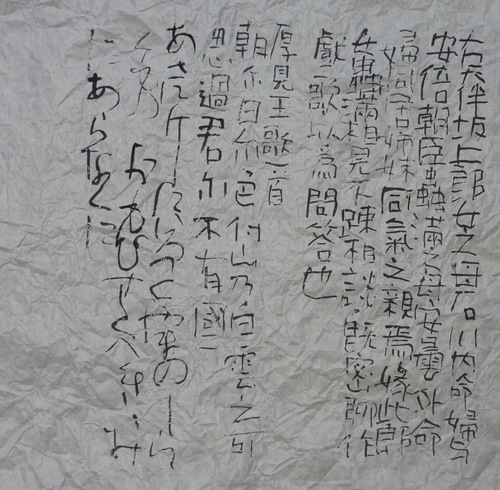 右大伴坂上郎女之母石川内命婦与
安倍朝臣蟲満之母安曇外命
婦同居姉妹同氣之親焉縁此郎
女蟲満相見不踈相談既密聊作
戯歌以為問答也
厚見王歌一首
朝尓日尓色付山乃白雲之可
思過君尓不有國
あさにけにいろつくやまのしら
くもの おもひすくへききみ
にあらなくに